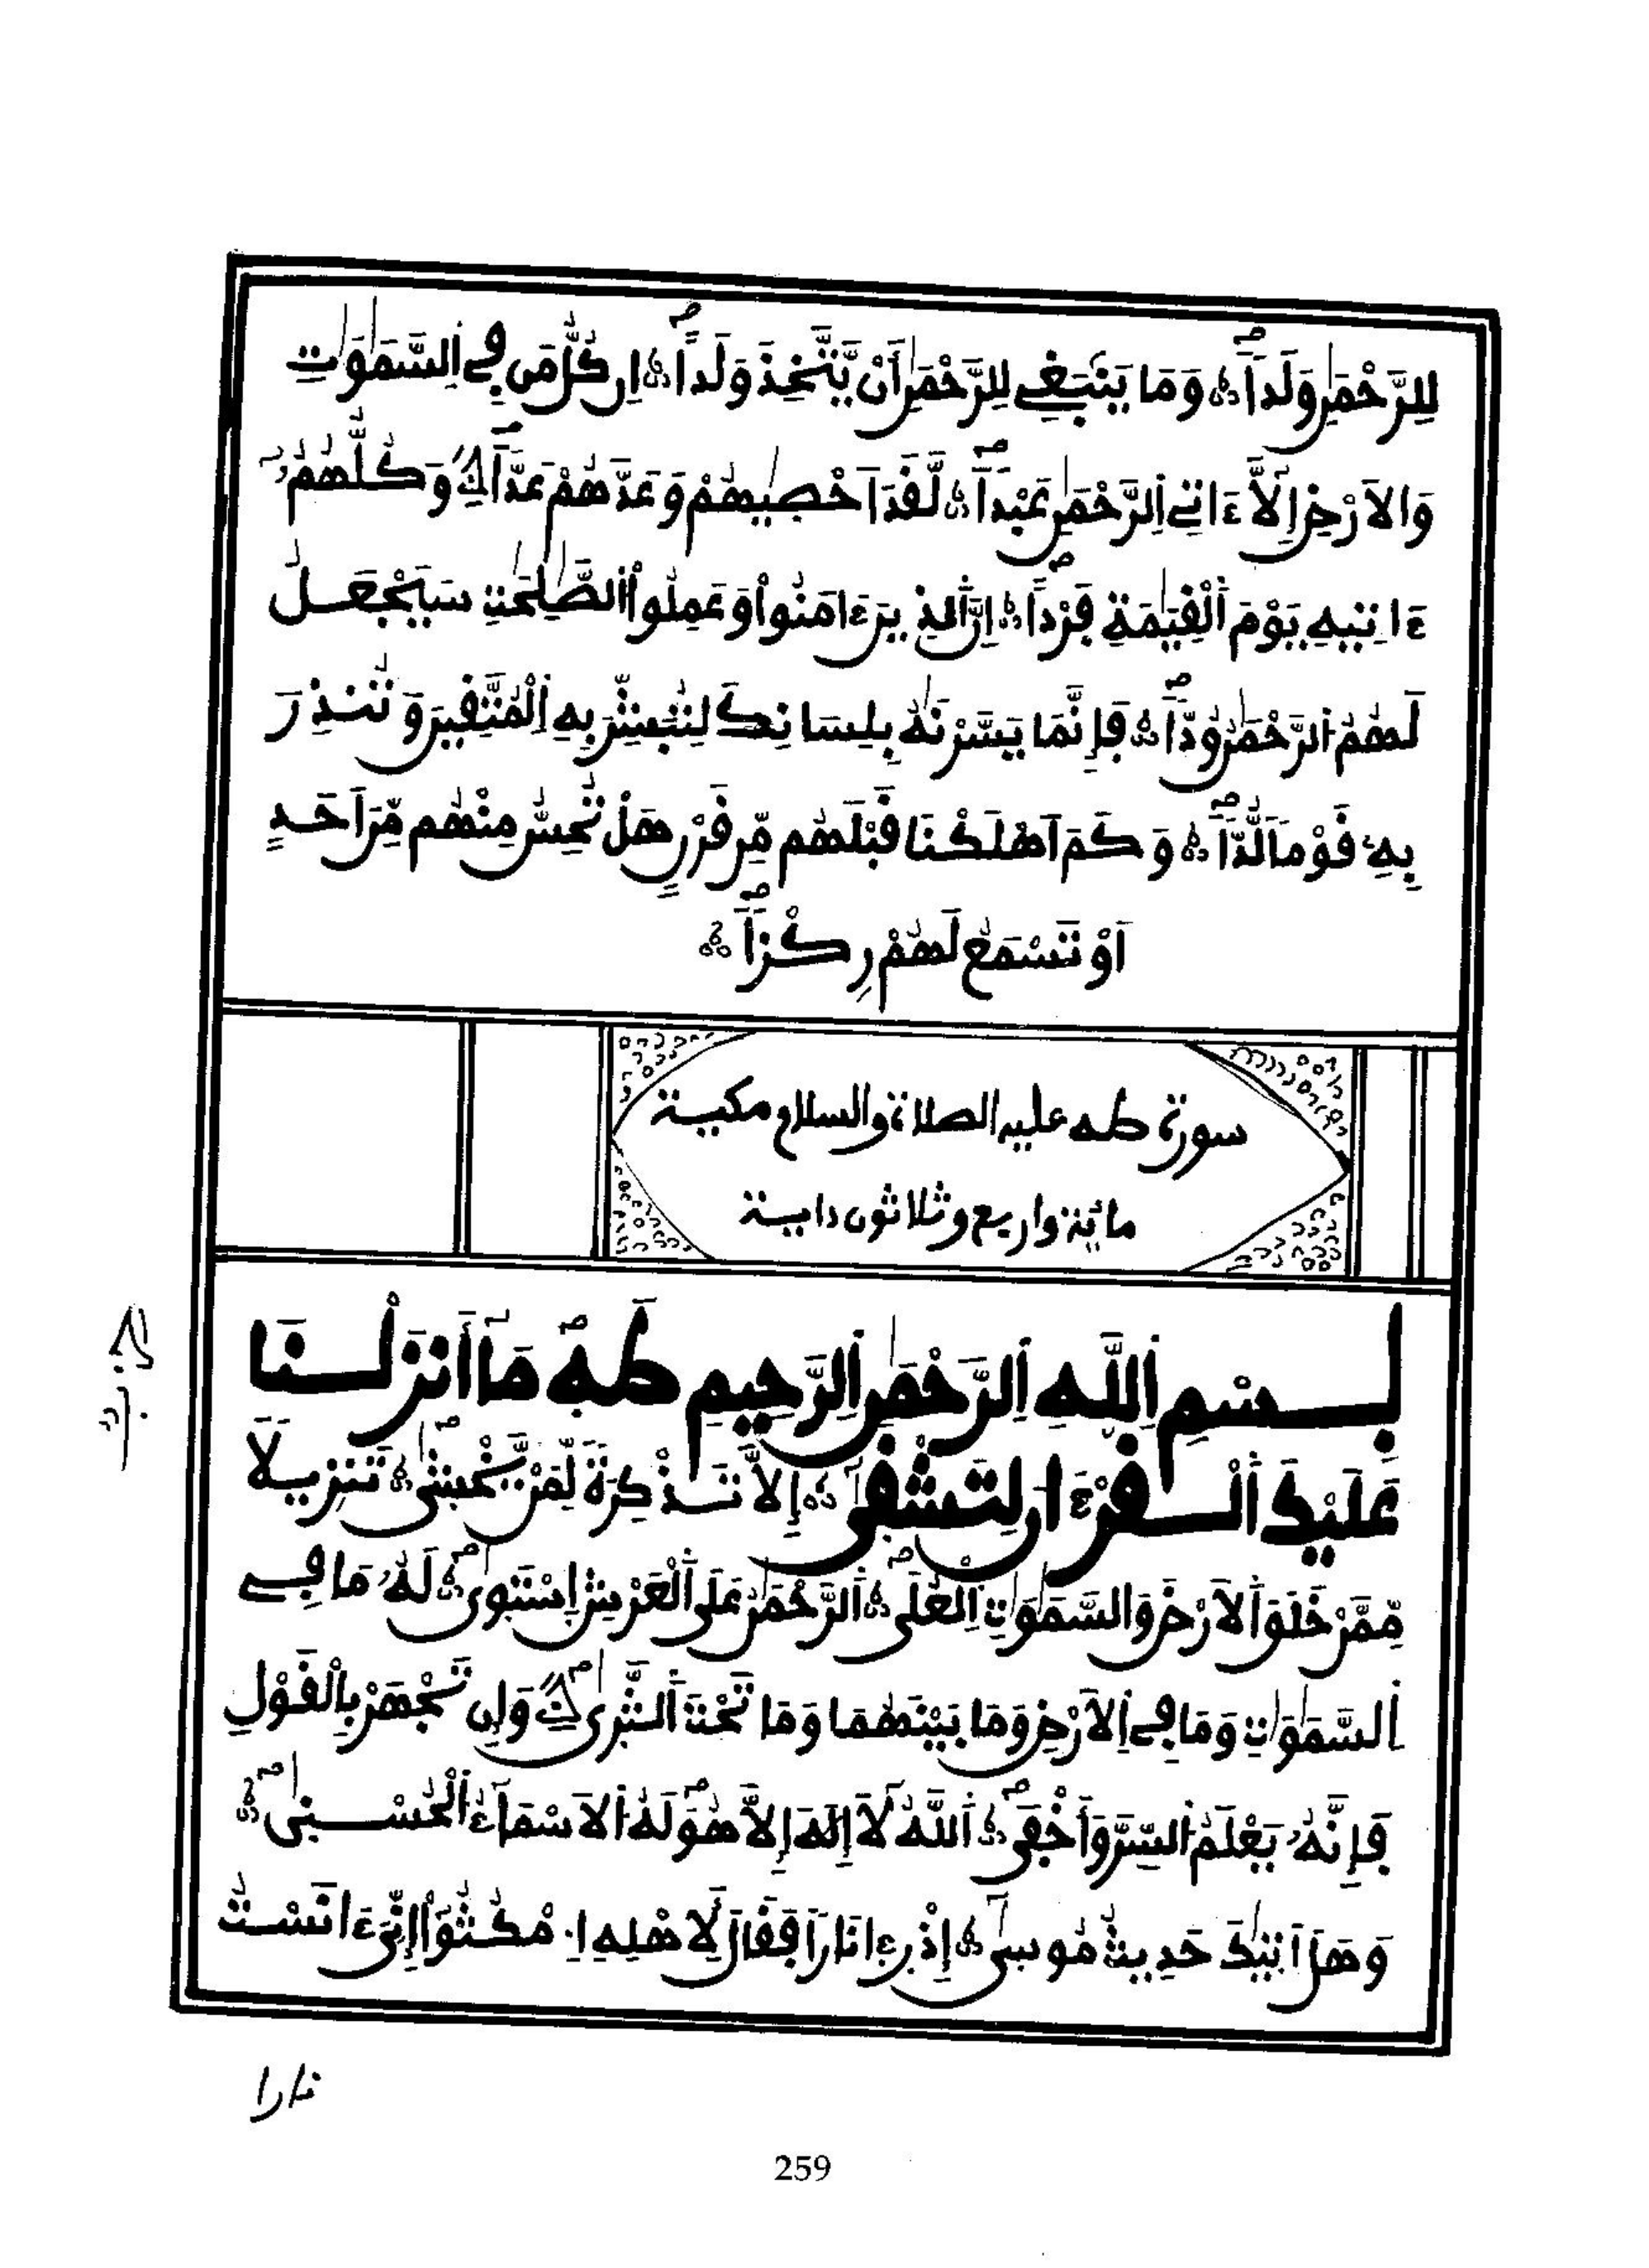 لِلرَّحْمَٰنِ وَلَداً ۝ وَمَا يَنۢبَغِے لِلرَّحْمَٰنِ أَنْ يَّتَّخِذَ وَلَداً ۝ اِن كُلُّ مَن فِے اِ۬لسَّمَٰوَٰتِ
وَالَارْضِ إِلَّآ ءَاتِے اِ۬لرَّحْمَٰنِ عَبْداً ۝ لَّقَدَ اَحْصٜيٰهُمْ وَعَدَّهُمْ عَدّاً ۝ وَكُلُّهُمُۥٓ
ءَاتِيهِ يَوْمَ اَ۬لْقِيَٰمَةِ فَرْداً ۝ اِنَّ اَ۬لذِينَ ءَامَنُواْ وَعَمِلُواْ اُ۬لصَّٰلِحَٰتِ سَيَجْعَلُ
لَهُمُ اُ۬لرَّحْمَٰنُ وُدّاً ۝ فَإِنَّمَا يَسَّرْنَٰهُ بِلِسَانِكَ لِتُبَشِّرَ بِهِ اِ۬لْمُتَّقِينَ وَتُنذِرَ
بِهِۦ قَوْماً لُّدّاً ۝ وَكَمَ اَهْلَكْنَا قَبْلَهُم مِّن قَرْنٍ هَلْ تُحِسُّ مِنْهُم مِّنَ اَحَدٍ
اَوْ تَسْمَعُ لَهُمْ رِكْزاً ۝
سورة طه عليه الصلاة والسلام مكية
مائة واربع وثلاثون داية
بِسْمِ اِ۬للَّهِ اِ۬لرَّحْمَٰنِ اِ۬لرَّحِيمِ طَهَ مَآ أَنزَلْنَا
عَلَيْكَ اَ۬لْقُرْءَانَ لِتَشْقٜيٰٓ ۝ إِلَّا تَذْكِرَةً لِّمَنْ يَّخْش۪يٰ ۝ تَنزِيلاً
مِّمَّنْ خَلَقَ اَ۬لَارْضَ وَالسَّمَٰوَٰتِ اِ۬لْعُلَى ۝ اَ۬لرَّحْمَٰنُ عَلَى اَ۬لْعَرْشِ اِ۪سْتَو۪يٰ ۝ لَهُۥ مَا فِے
اِ۬لسَّمَٰوَٰتِ وَمَا فِے اِ۬لَارْضِ وَمَا بَيْنَهُمَا وَمَا تَحْتَ اَ۬لثَّر۪يٰ ۝ وَإِن تَجْهَرْ بِالْقَوْلِ
فَإِنَّهُۥ يَعْلَمُ اُ۬لسِّرَّ وَأَخْفَى ۝ اَ۬للَّهُ لَآ إِلَٰهَ إِلَّا هُوَ لَهُ اُ۬لَاسْمَآءُ اُ۬لْحُسْن۪يٰ ۝
وَهَلَ اَت۪يٰكَ حَدِيثُ مُوس۪يٰٓ ۝ إِذْ رء۪ا نَاراً فَقَالَ لِأَهْلِهِ اِ۟مْكُثُوٓاْ إِنِّيَ ءَانَسْتُ
نارا
259